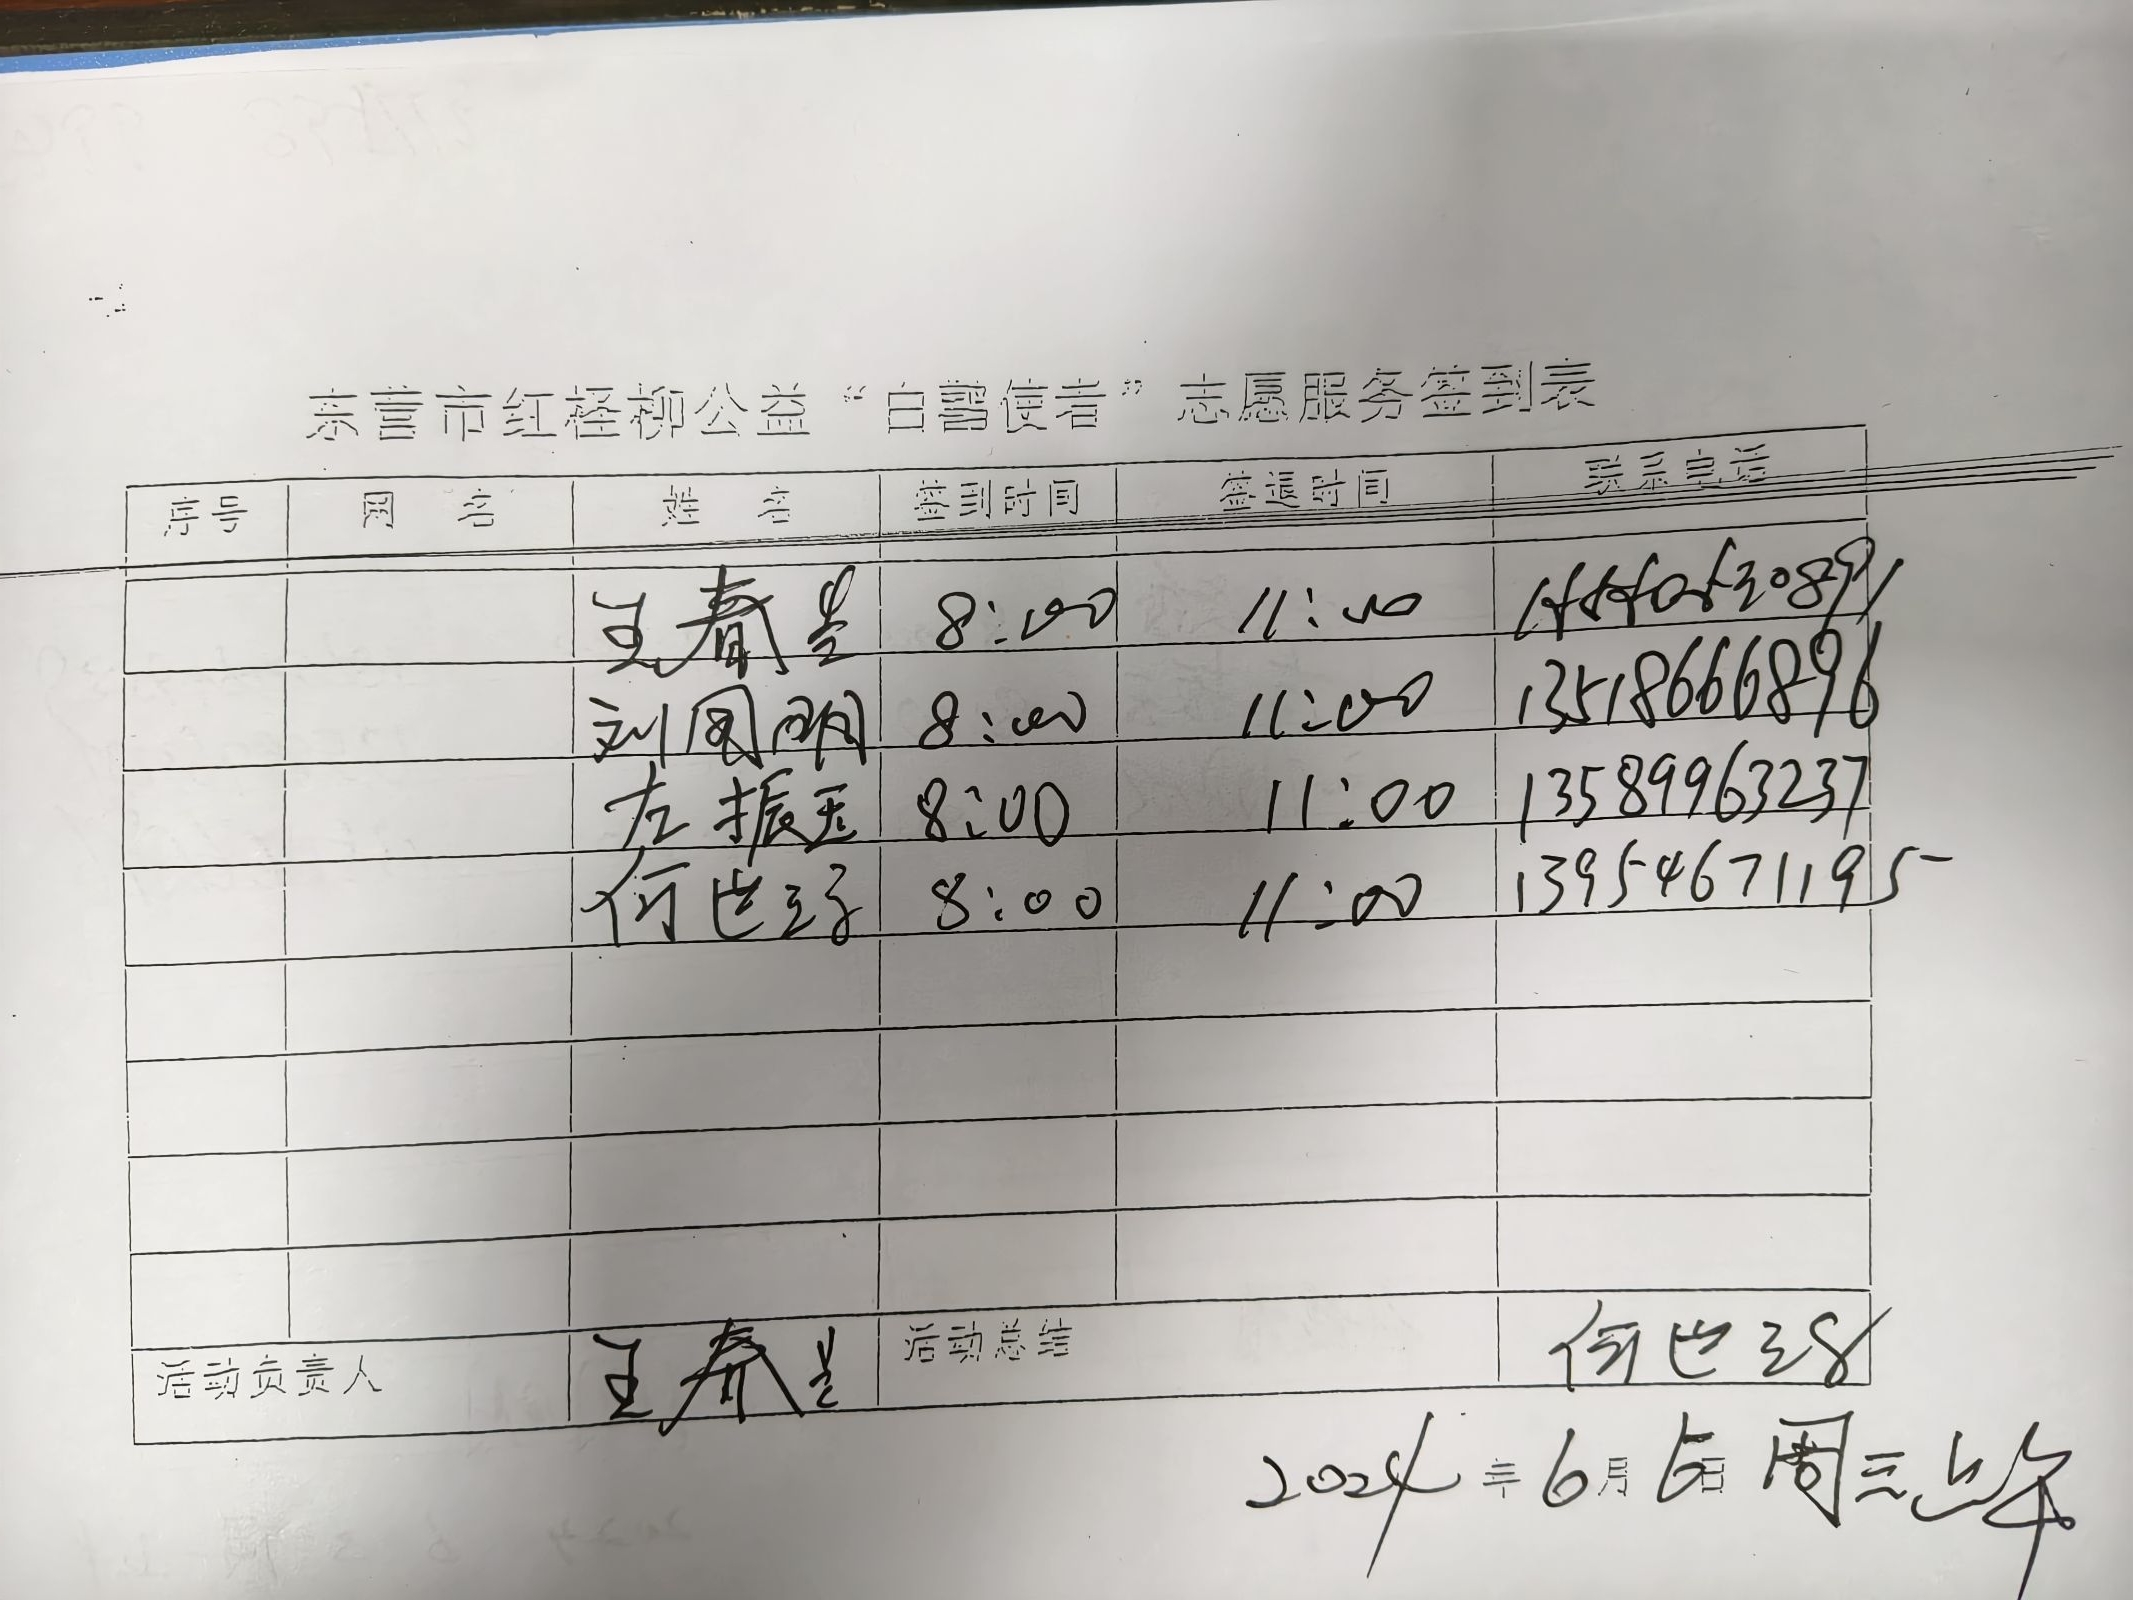 东营市红柽柳公益“白鹳使者”志愿服务签到表
序号 网 名 姓 名 签到时间 签退时间 联系电话
王春 8:00 11:00
刘国明 8:00 11:00 13518666896
左振玉 8:00 11:00 13589963237
何世 8:00 11:00 13954671195
活动负责人 王春 活动总结 何世
2024年6月5日 周三上午